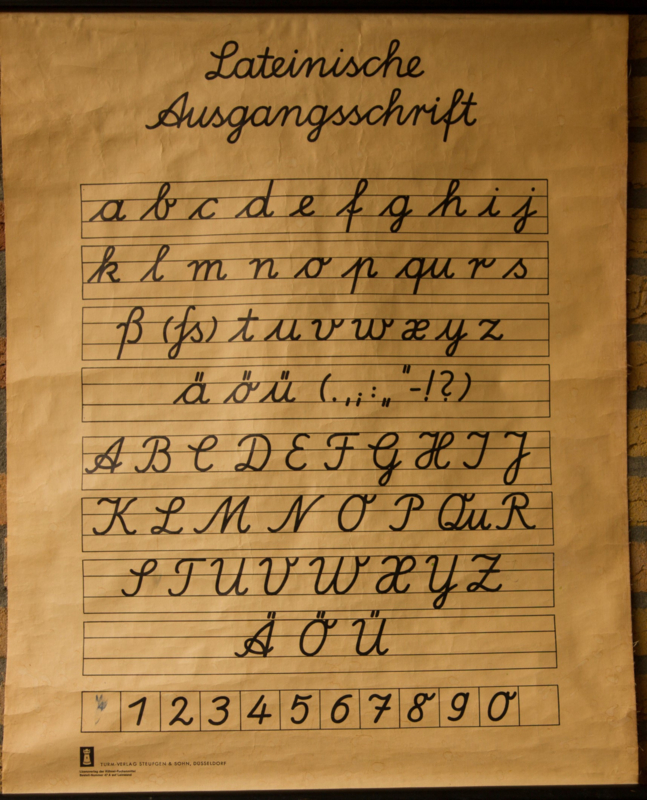 Lateinische
Ausgangsschrift
a b c d e f g h i j
k l m n o p qu r s
ß (ſs) t u v w x y z
ä ö ü (.,;:„"-!?)
A B C D E F G H I J
K L M N O P Qu R
S T U V W X Y Z
Ä Ö Ü
1 2 3 4 5 6 7 8 9 0
TURM-VERLAG STEUFGEN & SOHN, DÜSSELDORF